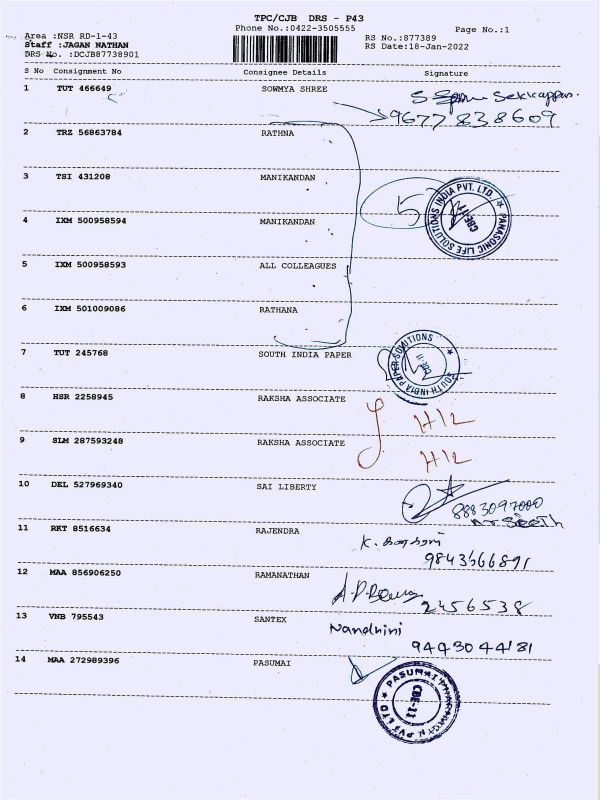 TPC/CJB DRS - P43
Phone No.:0422-3505555
Page No.:1
Area :NSR RD-1-43
RS No.:877389
Staff :JAGAN NATHAN
RS Date:18-Jan-2022
DRS No. :DCJB87738901
S No Consignment No Consignee Details Signature
1 TUT 466649 SOWMYA SHREE
9677 838609
2 TRZ 56863784 RATHNA
3 TSI 431208 MANIKANDAN
5
PANASONIC LIFE SOLUTIONS INDIA PVT. LTD.
CBE-11
4 IXM 500958594 MANIKANDAN
5 IXM 500958593 ALL COLLEAGUES
6 IXM 501009086 RATHANA
7 TUT 245768 SOUTH INDIA PAPER
SOUTH INDIA PAPER SOLUTIONS
CBE-11
8 HSR 2258945 RAKSHA ASSOCIATE
9 SLM 287593248 RAKSHA ASSOCIATE
10 DEL 527969340 SAI LIBERTY
8883097000
11 RKT 8516634 RAJENDRA
9843666891
12 MAA 856906250 RAMANATHAN
2456538
13 VNB 795543 SANTEX
Nandhini
9443044181
14 MAA 272989396 PASUMAI
PASUMAI
PVT LTD
CBE-11